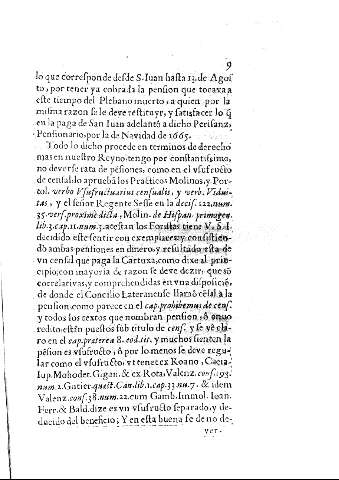 9
lo que corresponde desde S. Iuan hasta 13. de Agos
to, por tener ya cobrada la pension que tocava a
este tiempo del Plebano muerto, a quien por la
misma razon se le deve restituyr, y satisfacer lo q̃
en la paga de San Iuan adelantò a dicho Perisanz,
Pensionario, por la de Navidad de 1665.
Todo lo dicho procede en terminos de derecho
mas en nuestro Reyno, tengo por constantissimo,
no deverse rata de pẽsiones, como en el vsufructo
de censal lo apruebã los Practicos Molinos, y Por-
tol. verbo Vsufructuarius censualis, y verb. Vidui-
tas, y el señor Regente Sesse en la decis. 122. num.
35. vers. proximè dicta, Molin. de Hispan. primogen.
lib. 3. cap. 11. num. 3. atestan los Foristas tiene V. S. I.
decidido este sentir con exemplares, y consistien-
do ambas pensiones en dinero, y resultado esta de
vn censal que paga la Cartuxa, como dixe al prin-
cipio, con mayoria de razon se deve dezir, que sõ
correlativas, y comprehendidas en vna disposiciõ,
de donde el Concilio Lateranense llamò cẽsal a la
pension, como parece en el cap. prohibemus de cens.
y todos los textos que nombran pension, ò anuo
redito, estàn puestos sub titulo de cens. y se vè cla-
ro en el cap. præterea 8. eod. tit. y muchos sienten la
pẽsion es vsufructo, ò por lo menos se deve regu-
lar como el vsufructo, vt tenet ex Roano, Caeta-
Iup. Mohedec. Gigan. & ex Rota, Valenz. cons. 93.
num 2. Gutier. quæst. Can. lib. 1. cap. 33. nu. 7. & idem
Valenz. cons. 38. num. 22. cum Gamb. Inmol. Ioan.
Ferr. & Bald. dize es vn vsufructo separado, y de-
ducido del beneficio; Y en esta buena fe de no de-
ver-